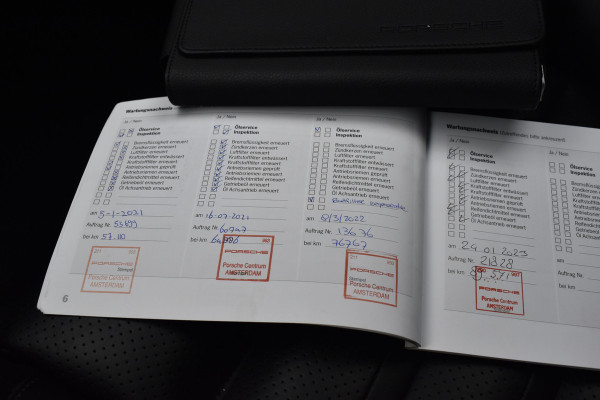 PORSCHE
Wartungsnachweis
Ja / Nein
Ölservice
Inspektion
Bremsflüssigkeit erneuert
Zündkerzen erneuert
Luftfilter erneuert
Kraftstoffilter entwässert
Kraftstoffilter erneuert
Antriebsriemen geprüft
Antriebsriemen erneuert
Reifendichtmittel erneuert
Getriebeöl erneuert
Öl Achsantrieb erneuert
am 5-1-2021
Auftrag Nr.
bei km
PORSCHE
Porsche Centrum
AMSTERDAM
6
Ja / Nein
Ölservice
Inspektion
Bremsflüssigkeit erneuert
Zündkerzen erneuert
Luftfilter erneuert
Kraftstoffilter entwässert
Kraftstoffilter erneuert
Antriebsriemen geprüft
Antriebsriemen erneuert
Reifendichtmittel erneuert
Getriebeöl erneuert
Öl Achsantrieb erneuert
am 16-07-2021
Auftrag Nr. 60747
bei km
PORSCHE
Porsche Centrum
AMSTERDAM
Ja / Nein
Ölservice
Inspektion
Bremsflüssigkeit erneuert
Zündkerzen erneuert
Luftfilter erneuert
Kraftstoffilter entwässert
Kraftstoffilter erneuert
Antriebsriemen geprüft
Antriebsriemen erneuert
Reifendichtmittel erneuert
Getriebeöl erneuert
Öl Achsantrieb erneuert
am
Auftrag Nr. 13636
bei km 76767
PORSCHE
Porsche Centrum
AMSTERDAM
Wartungsnachweis (Zutreffendes bitte ankreuzen)
Ja / Nein
Ölservice
Inspektion
Bremsflüssigkeit erneuert
Zündkerzen erneuert
Luftfilter erneuert
Kraftstoffilter entwässert
Kraftstoffilter erneuert
Antriebsriemen geprüft
Antriebsriemen erneuert
Reifendichtmittel erneuert
Getriebeöl erneuert
Öl Achsantrieb erneuert
am 24.01.2023
Auftrag Nr. 21828
bei km
PORSCHE
Porsche Centrum
AMSTERDAM
Ja / Nein
am
Auftrag Nr.
bei km